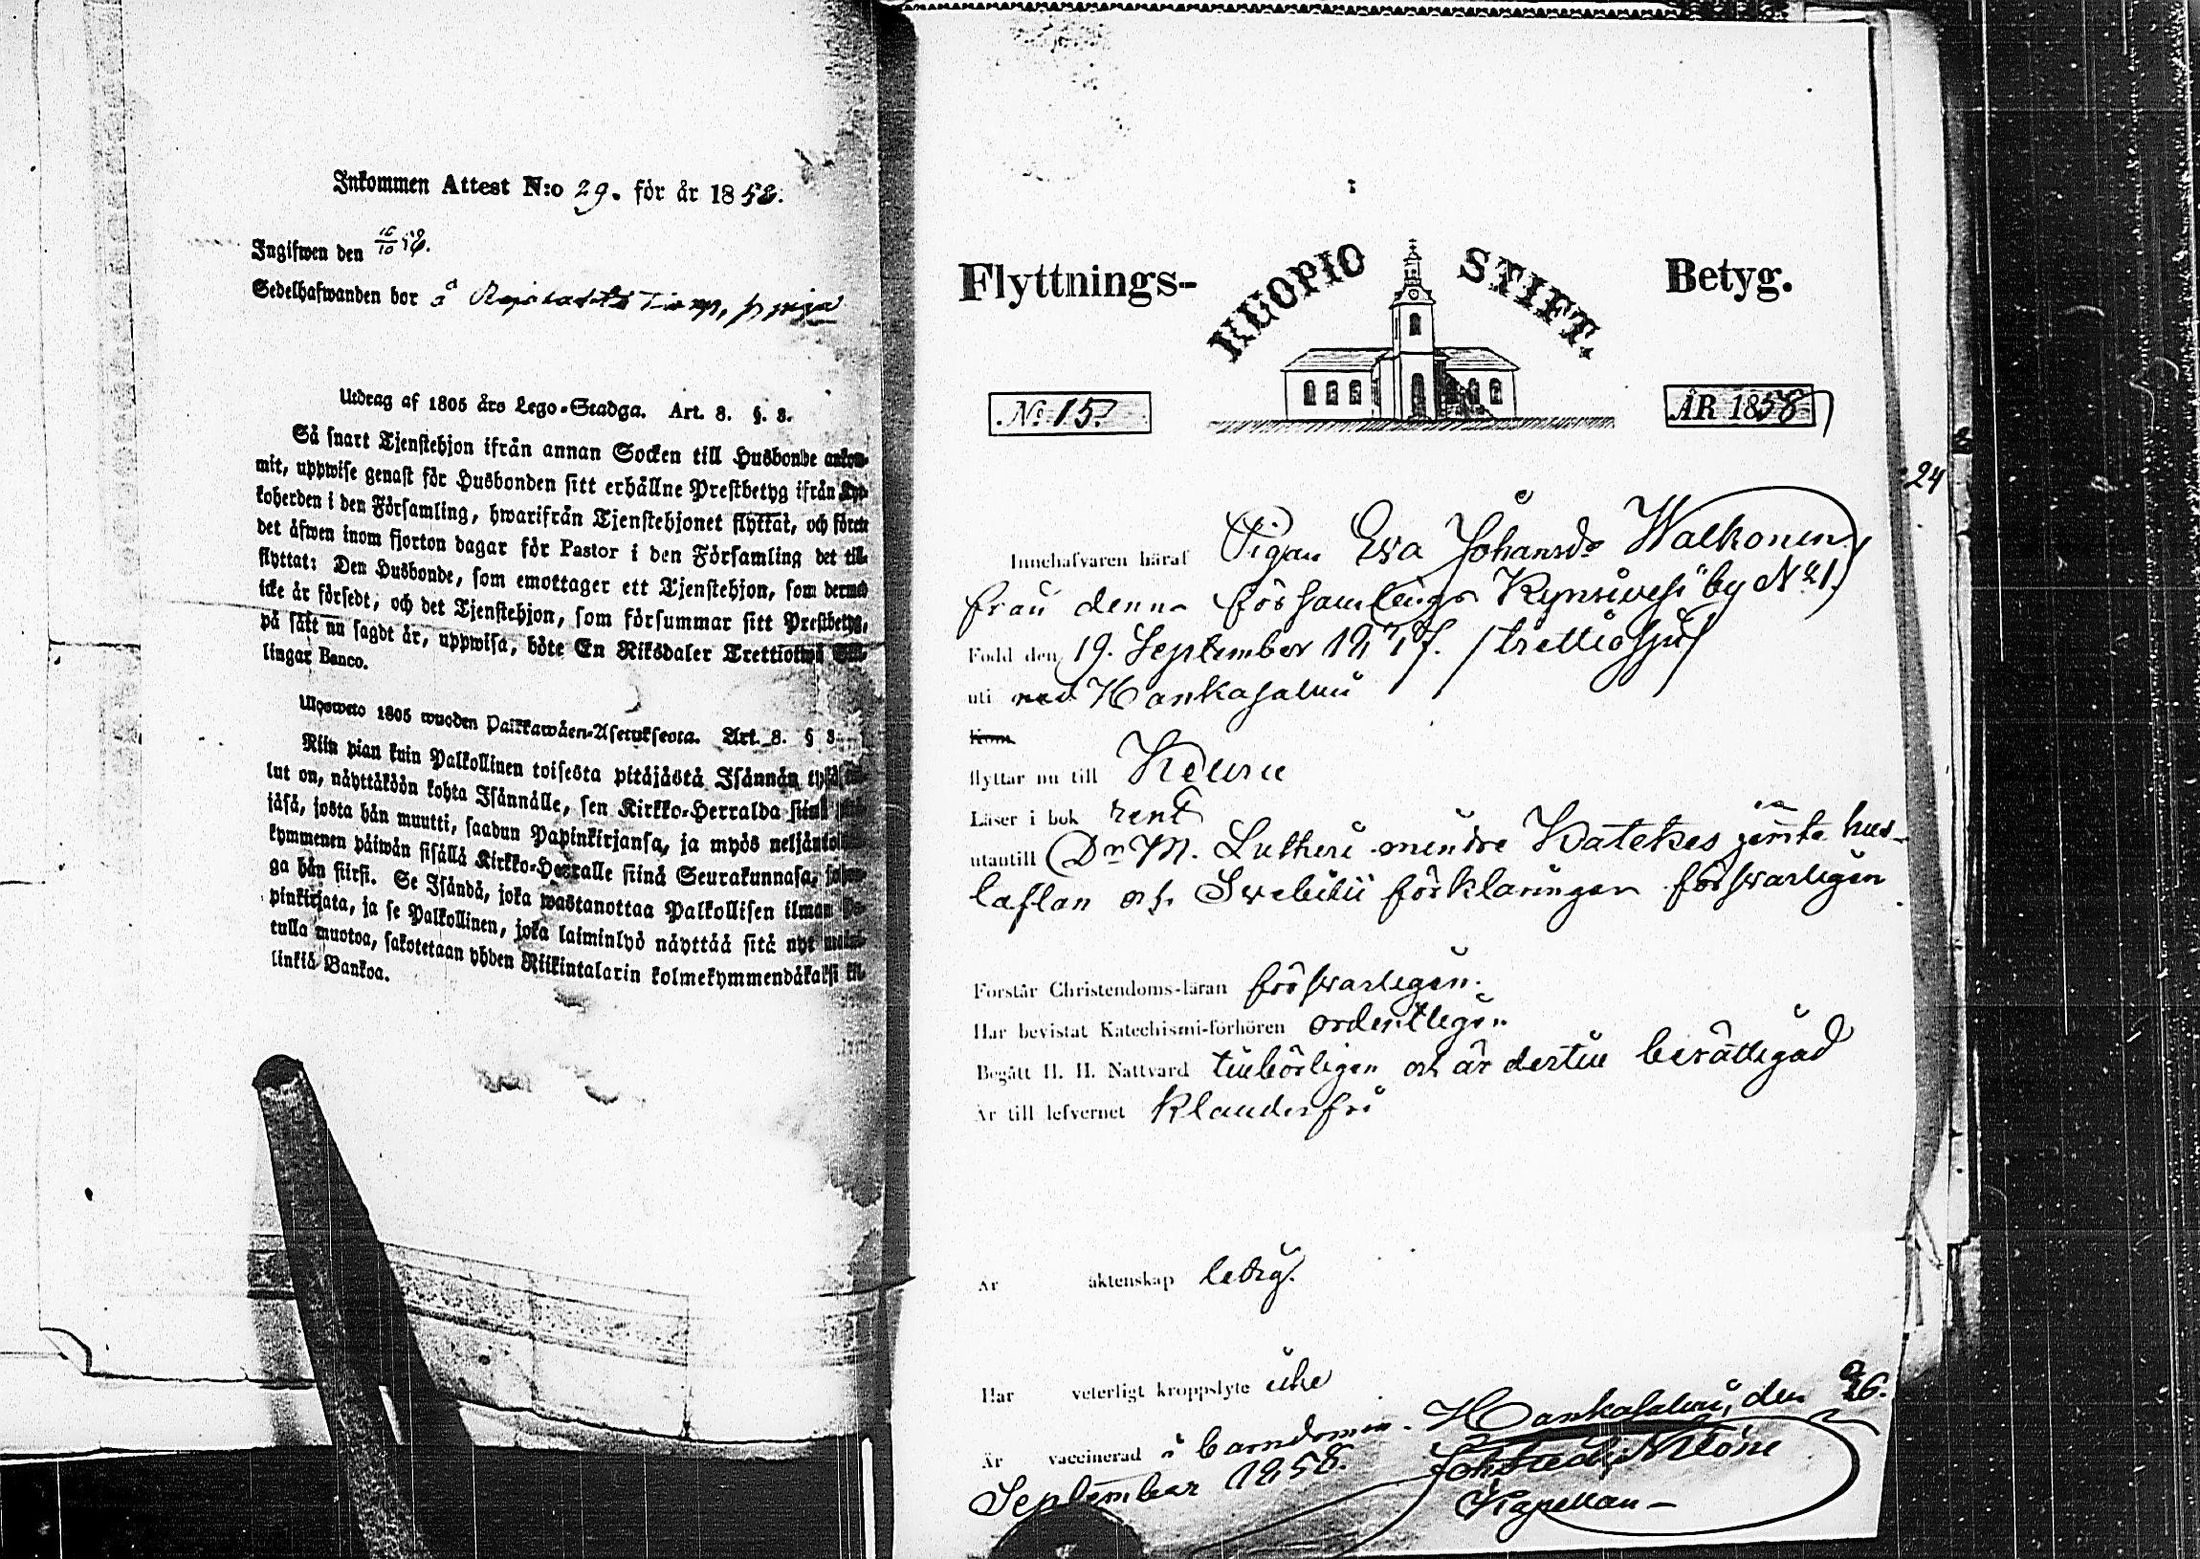 Inkommen Attest N:o 29. för år 1858.
Ingifwen den 16/10 58.
Sedelhafwanden bor å
Utdrag af 1805 års Lego-Stadga. Art. 8. §. 8.
Så snart Tjenstehjon ifrån annan Socken till Husbonde ankom-
mit, uppwise genast för Husbonden sitt erhållne Prestbetyg ifrån Kyr-
koherden i den Församling, hwarifrån Tjenstehjonet flyttat, och förete
det äfwen inom fjorton dagar för Pastor i den Församling det till-
flyttat: Den Husbonde, som emottager ett Tjenstehjon, som dermed
icke är försedt, och det Tjenstehjon, som försummar sitt Prestbetyg,
på sätt nu sagdt är, uppwisa, böte En Riksdaler Trettiotwå Skil-
lingar Banco.
Ulosweto 1805 wuoden Palkkawäen-Asetuksesta. Art. 8. § 8.
Niin pian kuin Palkollinen toisesta pitäjästä Isännän tykö
lut on, näyttäköön kohta Isännälle, sen Kirkko-Herralda siinä
jäsä, josta hän muutti, saadun Papinkirjansa, ja myös neljäntoista
kymmenen päiwän sisällä Kirkko-Herralle siinä Seurakunnasa, johon-
ga hän siirsi. Se Isändä, joka wastanottaa Palkollisen ilman Pa-
pinkirjata, ja se Palkollinen, joka laiminlyö näyttää sitä nyt maini-
tulla muotoa, sakotetaan yhden Riikintalarin kolmekymmendäkaksi kil-
linkiä Bankoa.
Flyttnings- KUOPIO STIFT. Betyg.
No 15. ÅR 1858
24
Innehafvaren häraf Pigan Eva Johansdr Walkonen
från denna församlings Kynsivesi by No 1.
Född den 19. September 1837. /trettiosju/
uti Hankasalmi
Kom
flyttar nu till Keuru
Läser i bok rent
utantill Dr M. Lutheri mindre Katekes jemte hus-
taflan och Swebilii förklaringar försvarligen
Förstår Christendoms-läran försvarligen.
Har bevistat Katechismi-förhören ordentligen
Begått H. H. Nattvard tillbörligen och är dertill berättigad
Är till lefvernet klanderfri
Är äktenskap ledig.
Har veterligt kroppslyte icke
Är vaccinerad i barndomen. Hankasalmi, den 26.
September 1858.
Kapellan